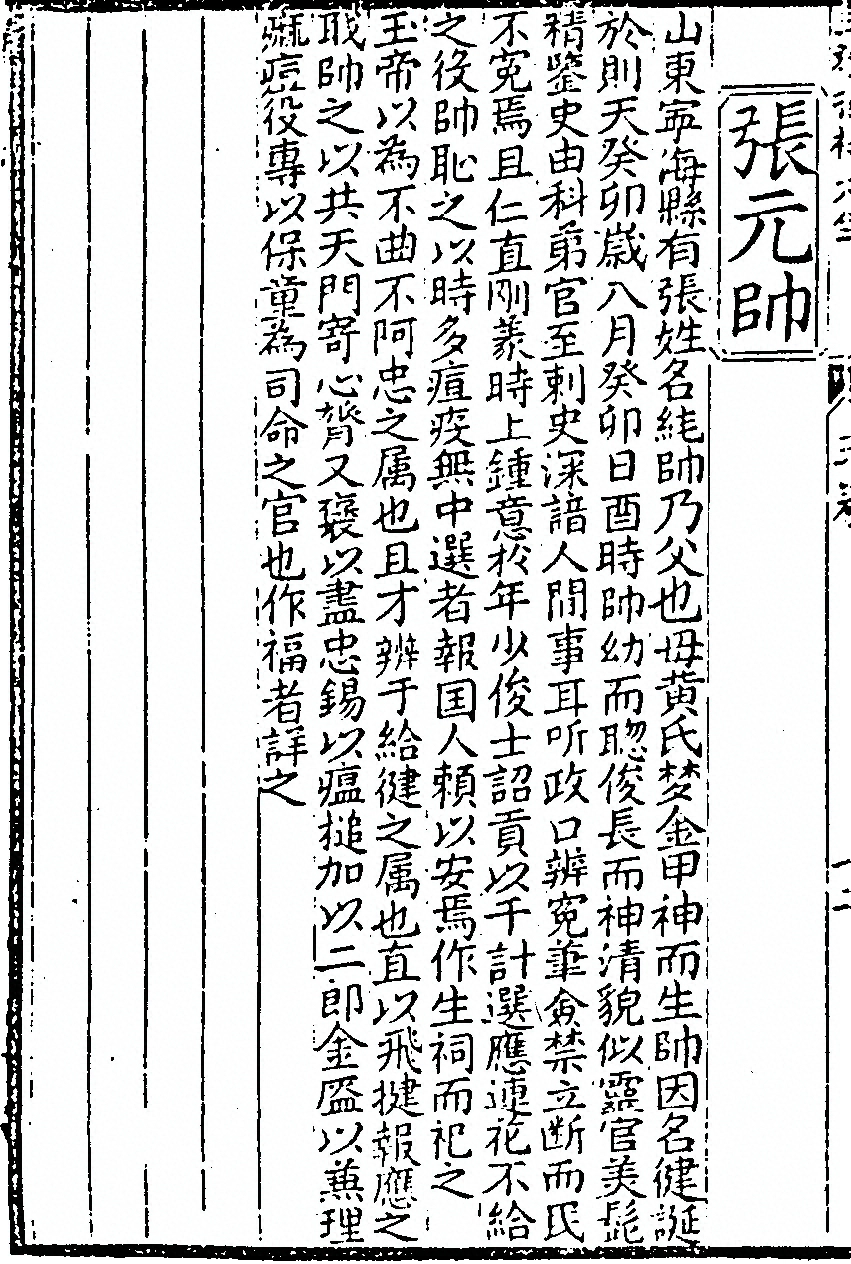 張元帥
山東寧海縣有張姓名純帥乃父也母黄氏梦金甲神而生帥因名健誕
於則天癸卯歲八月癸卯日酉時帥幼而聰俊長而神清貌似靈官美髭
精鑒史由科第官至刺史深諳人間事耳听政口辨寃筆僉禁立断而民
不寃焉且仁直剛義時上鍾意於年少俊士詔貢以千計選應蓮花不給
之役帥恥之以時多痘疾無中選者報囯人頼以安焉作生祠而祀之
玉帝以為不曲不阿忠之属也且才辨于給健之属也直以飛捷報應之
职帥之以共天門寄心膂又褒以盡忠錫以瘟槌加以二郎金盔以蕪理
痳痘役專以保童為司命之官也作福者詳之